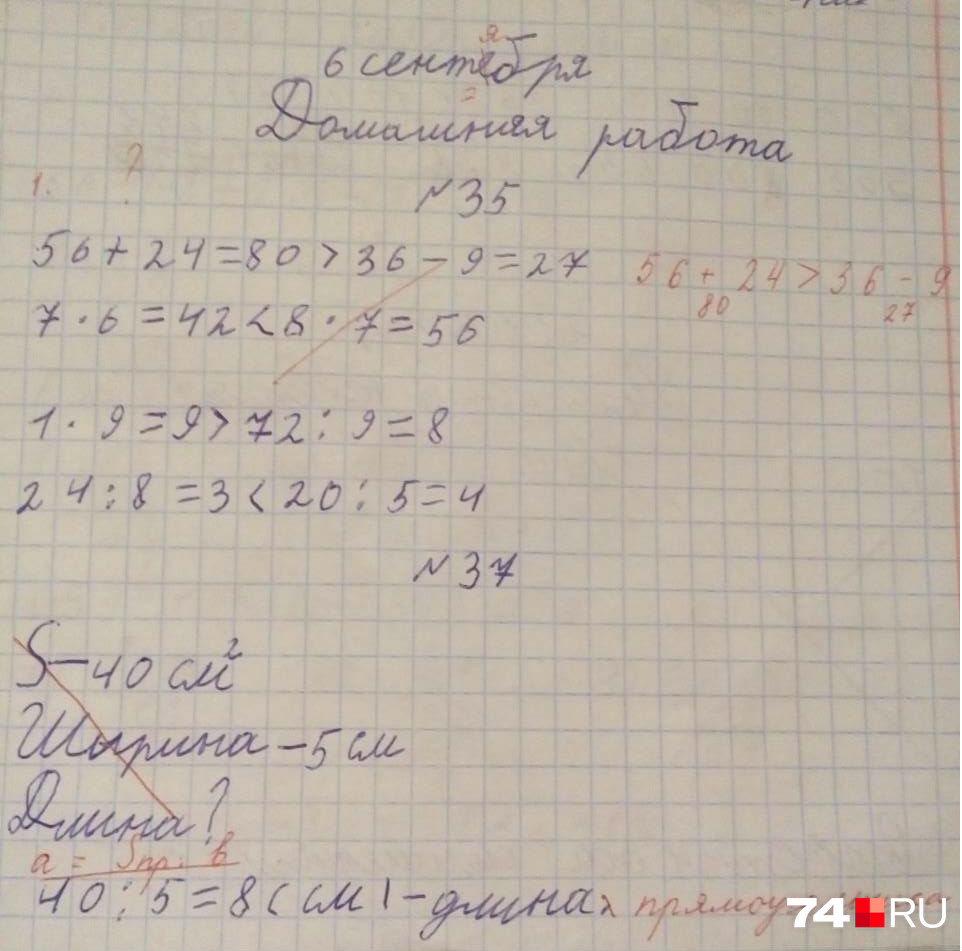 я
6 сентебря
Домашняя работа
1. ?
№35
56+24=80>36-9=27
56+24>36-9
80 27
7·6=42<8·7=56
1·9=9>72:9=8
24:8=3<20:5=4
№37
S-40 см²
Шырина-5см
Длина?
a = Sпр: b
40:5=8(см)-длина прямоугольника
74.RU